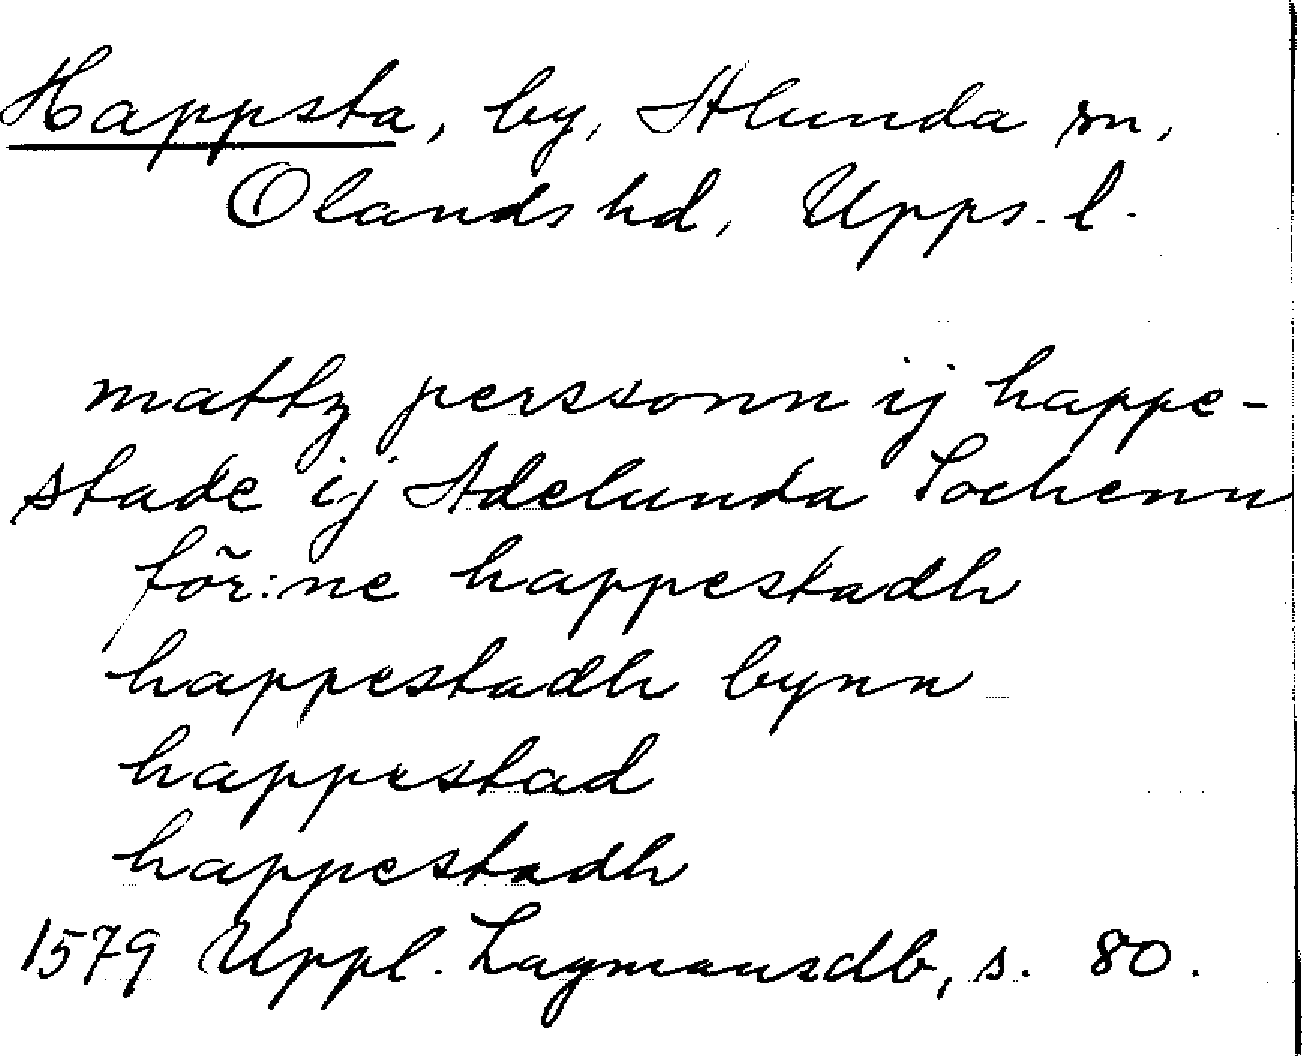 Happsta, by, Alunda sn,
Olands hd, Upps. l.
mattz perssonn ij happe-
stade ij Adelunda Sochenn
för:ne happestadh
happestadh bynn
happestad
happestadh
1579 Uppl. Lagmansdb, s. 80.